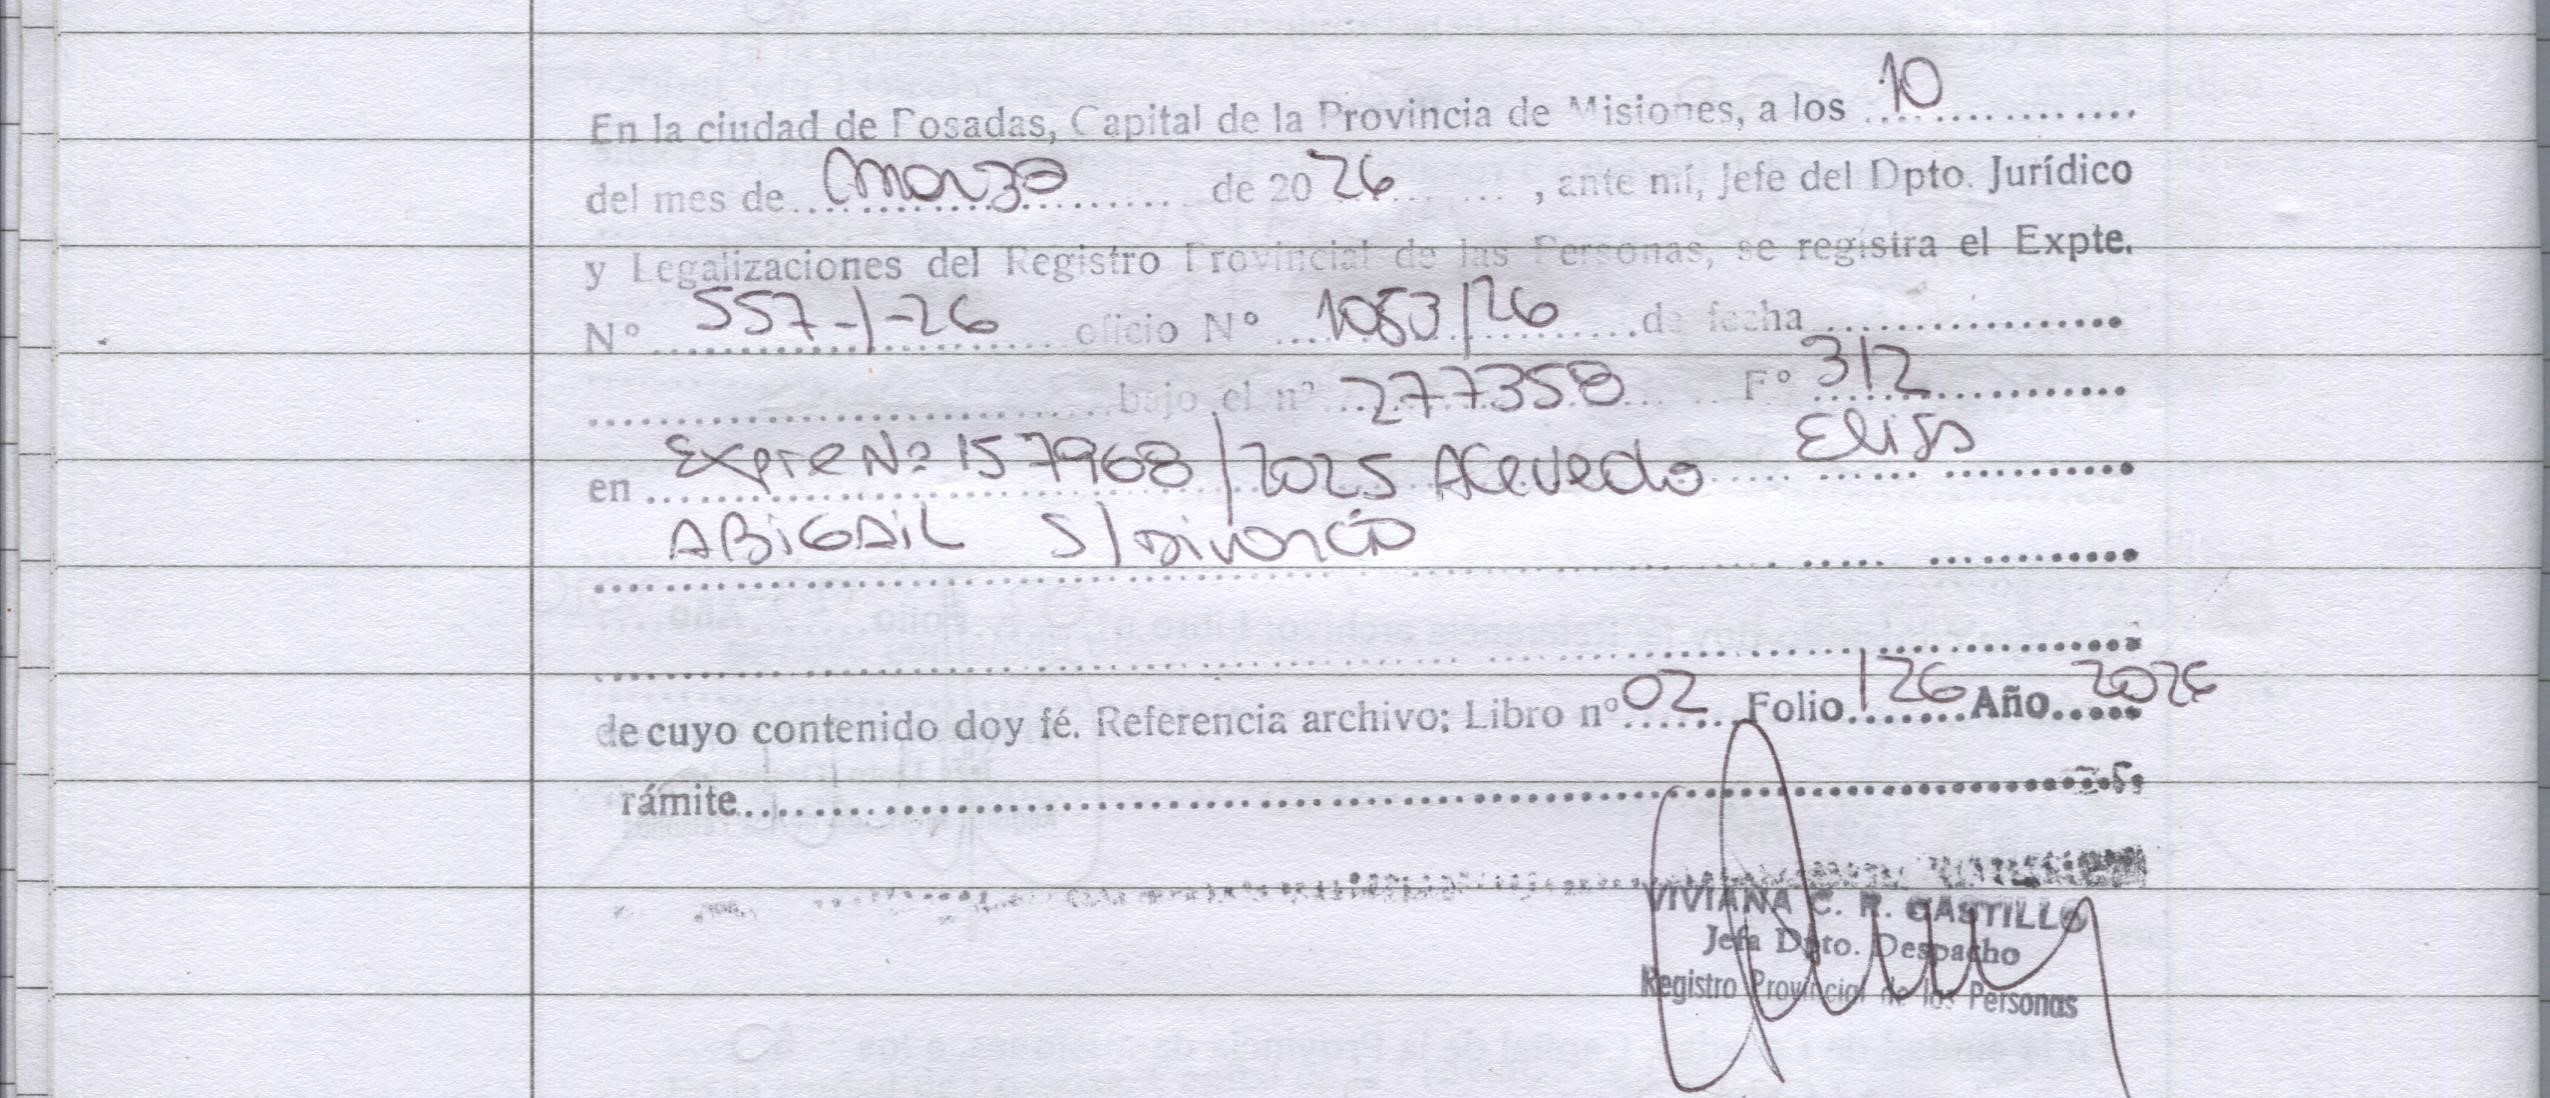 En la ciudad de Posadas, Capital de la Provincia de Misiones, a los 10
del mes de marzo de 2026, ante mí, Jefe del Dpto. Jurídico
y Legalizaciones del Registro Provincial de las Personas, se registra el Expte.
Nº 557-/-26 oficio Nº 1083/26 de fecha
bajo el nº 277358 Fº 312
en Expte Nº 157968/2025 Acevedo Elisa
ABiGAiL S/Divorcio
de cuyo contenido doy fé. Referencia archivo: Libro nº 02 Folio 126 Año 2026
rámite
VIVIANA C. R. CASTILLO
Jefa Dpto. Despacho
Registro Provincial de las Personas